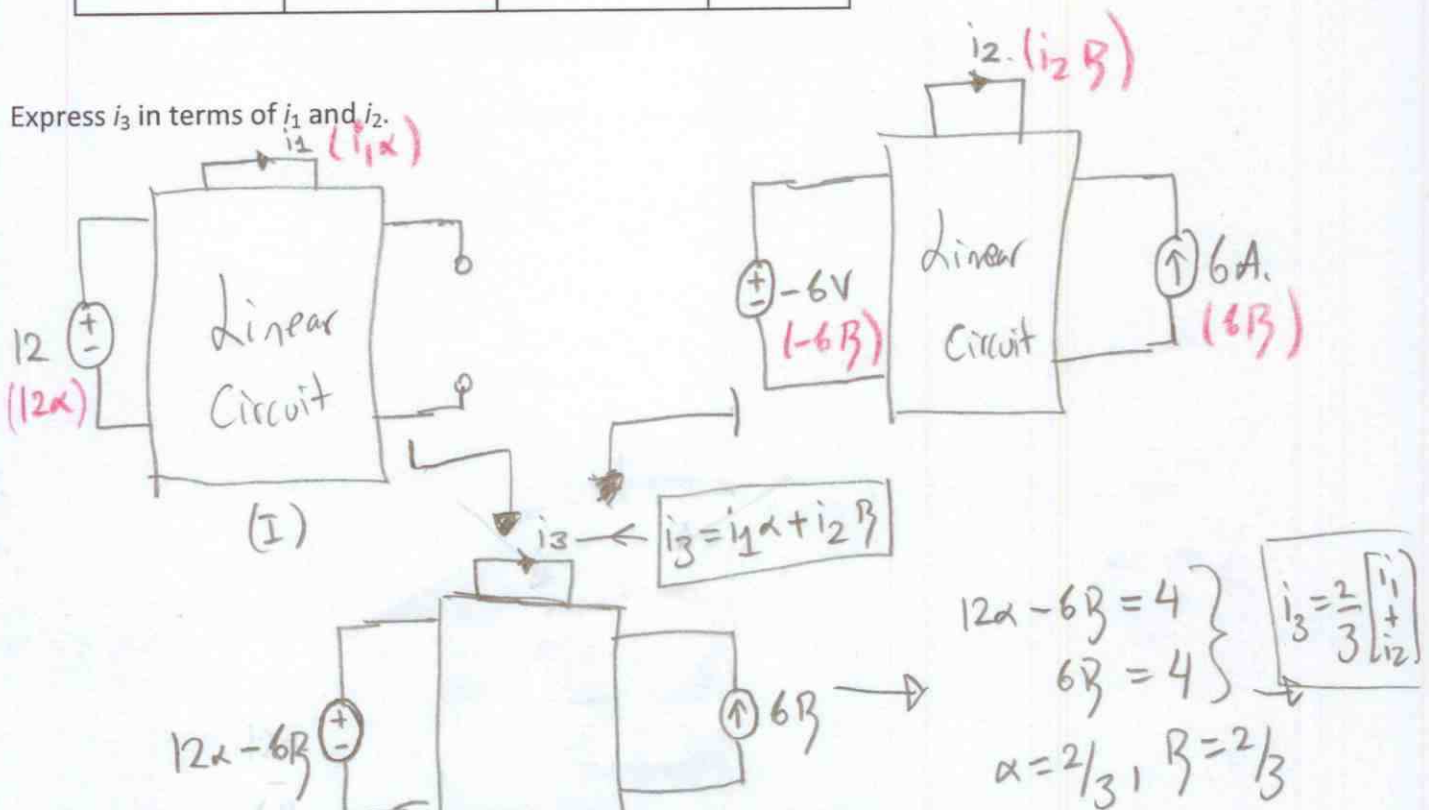 Express i3 in terms of i1 and i2.
i1 (i1α)
12
(12α)
Linear
Circuit
(I)
i2. (i2 β)
-6V
(-6β)
Linear
Circuit
6A.
(6β)
i3
i3 = i1 α + i2 β
12α - 6β
6β
12α - 6β = 4
6β = 4
α = 2/3, β = 2/3
i3 = 2/3 [i1 + i2]